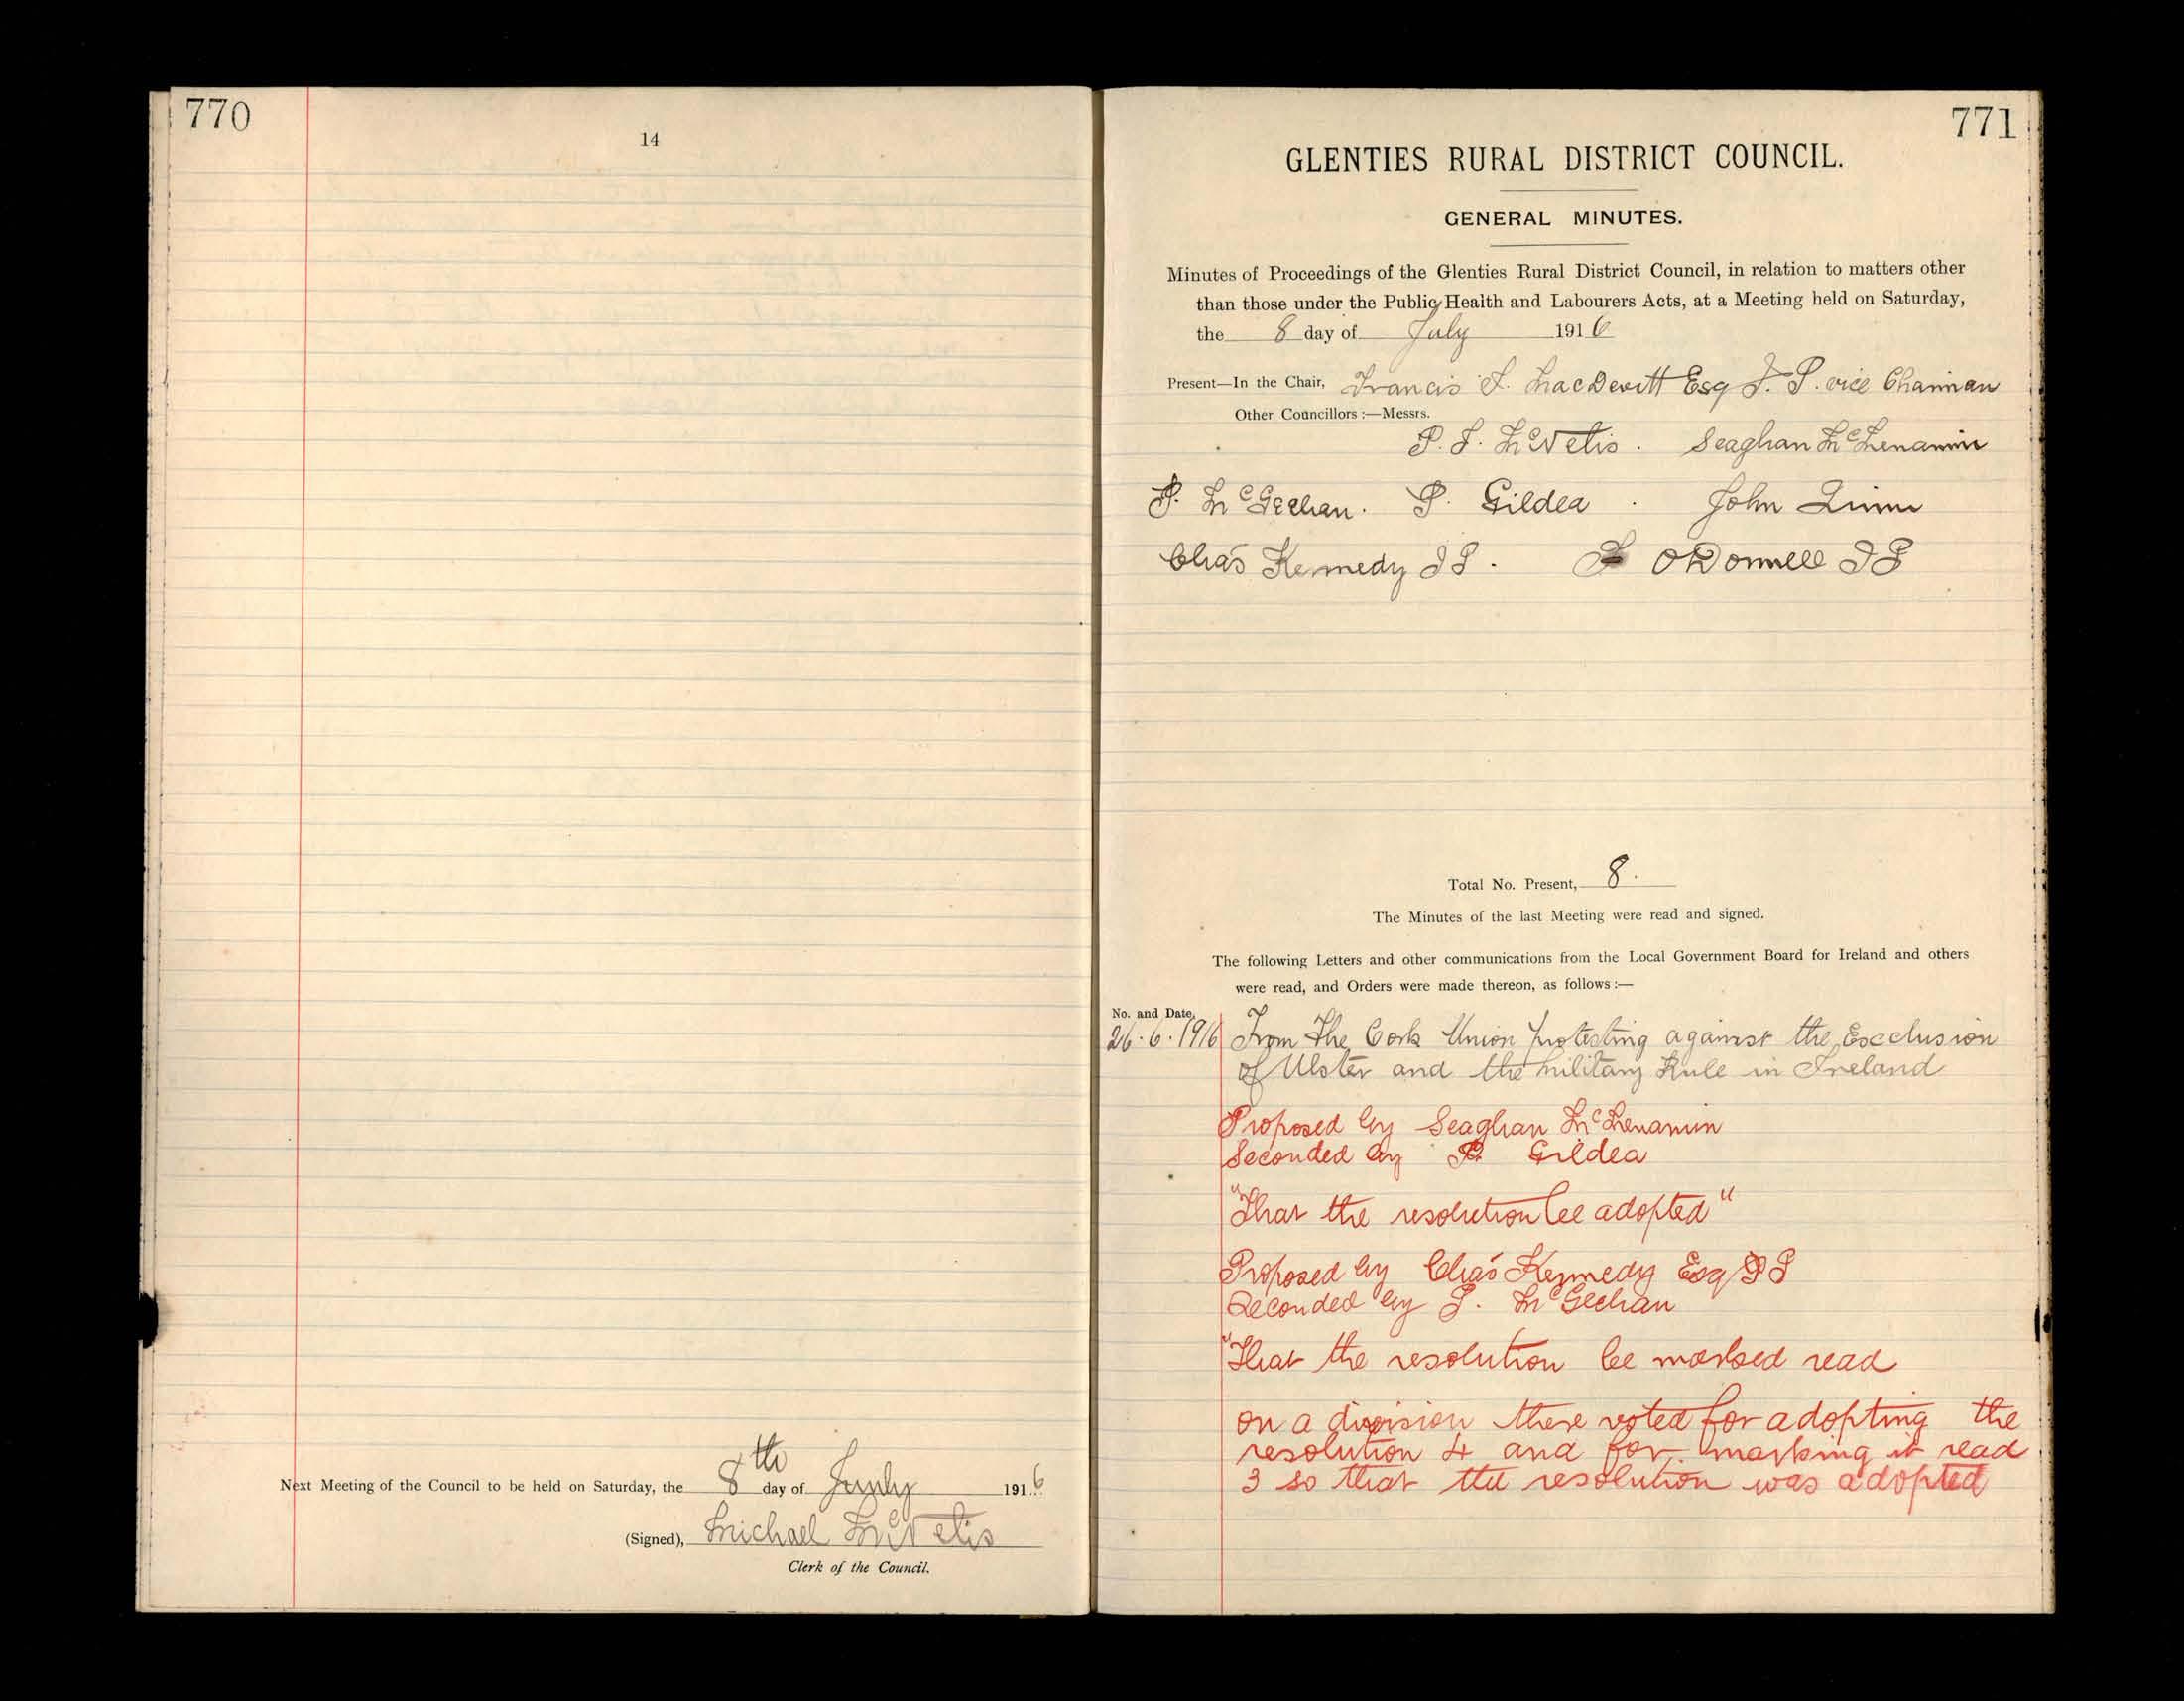 770
14
Next Meeting of the Council to be held on Saturday, the 8th day of July 1916
(Signed), Michael McNelis
Clerk of the Council.
771
GLENTIES RURAL DISTRICT COUNCIL.
GENERAL MINUTES.
Minutes of Proceedings of the Glenties Rural District Council, in relation to matters other
than those under the Public Health and Labourers Acts, at a Meeting held on Saturday,
the 8 day of July 1916
Present—In the Chair, Francis J. MacDevitt Esq J. P. vice Chairman
Other Councillors :—Messrs.
P. J. McNelis . Seaghan McMenamin
P. McGeehan. P. Gildea . John Quinn
Chas Kennedy J P . O'Donnell J P
Total No. Present, 8.
The Minutes of the last Meeting were read and signed.
The following Letters and other communications from the Local Government Board for Ireland and others
were read, and Orders were made thereon, as follows :—
No. and Date.
26.6.1916 From the Cork Union protesting against the Exclusion
of Ulster and the military Rule in Ireland
Proposed by Seaghan McMenamin
Seconded by P. Gildea
"That the resolution be adopted"
Proposed by Chas Kennedy Esq J P
Seconded by P. McGeehan
"That the resolution be marked read
on a division there voted for adopting the
resolution 4 and for marking it read
3 so that the resolution was adopted